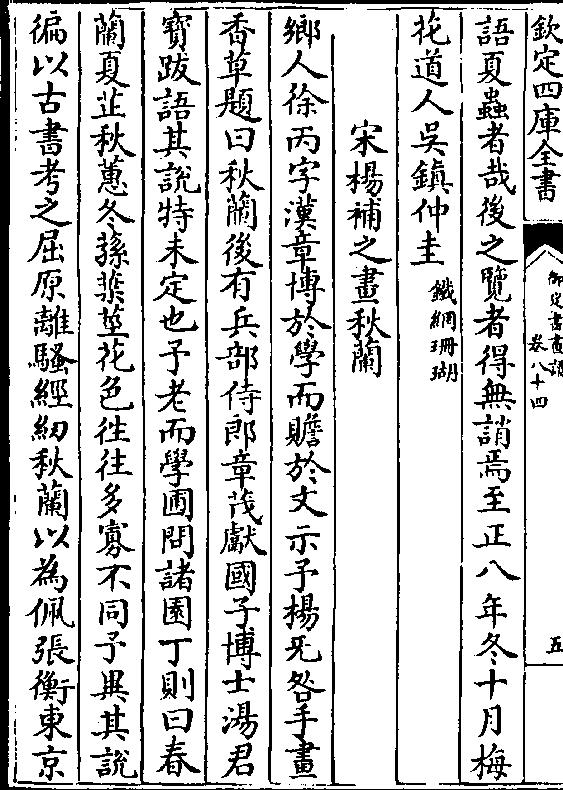 欽定四庫全書
御定書畫譜
卷八十四
五
語夏蟲者哉後之覽者得無誚焉至正八年冬十月梅
花道人吳鎮仲圭鐵網珊瑚
宋楊補之畫秋蘭
鄉人徐丙字漢章博於學而贍於文示予楊旡咎手畫
香草題曰秋蘭後有兵部侍郎章茂獻國子博士湯君
寶跋語其說特未定也予老而學圃問諸園丁則曰春
蘭夏芷秋蕙冬蓀葉莖花色徃往多寡不同予異其說
徧以古書考之屈原離騷經紉秋蘭以為佩張衡東京